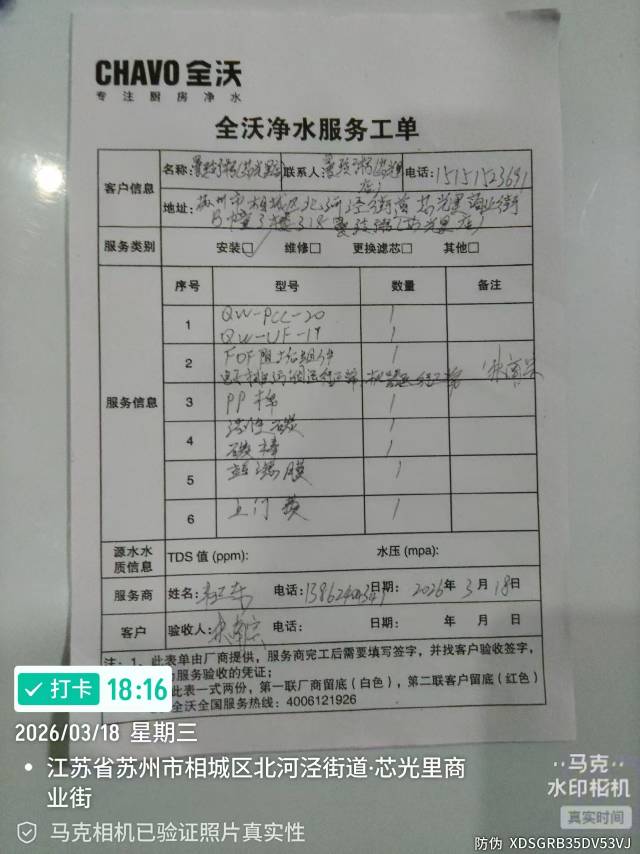 CHAVO 全沃
专注厨房净水
全沃净水服务工单
客户信息
名称: 联系人: 电话: 15151523691
地址: 苏州市相城区北河泾街道芯光里商业街
B幢3楼318
服务类别 安装□ 维修□ 更换滤芯□ 其他□
服务信息
序号 型号 数量 备注
1 QW-PCC-20 1
QW-UF-19 1
2 FOF阻垢组件 1
3 PP棉 1
4 活性碳 1
碳棒 1
5 超滤膜 1
6 上门费 1
源水水质信息 TDS 值 (ppm): 水压 (mpa):
服务商 姓名: 电话: 日期: 2026年 3月 18日
客户 验收人: 电话: 日期: 年 月 日
注:1、此表单由厂商提供,服务商完工后需要填写签字,并找客户验收签字,
服务验收的凭证;
此表一式两份,第一联厂商留底(白色),第二联客户留底(红色)
全沃全国服务热线:4006121926
打卡 18:16
2026/03/18 星期三
江苏省苏州市相城区北河泾街道·芯光里商
业街
马克相机已验证照片真实性
马克
水印相机
真实时间
防伪 XDSGRB35DV53VJ